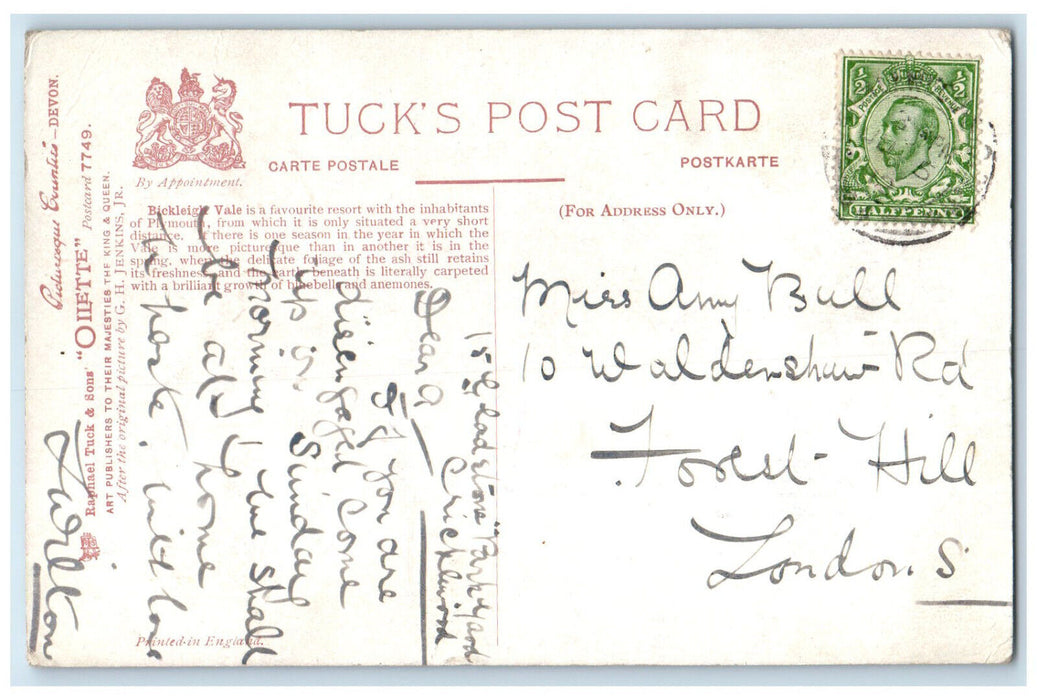 TUCK'S POST CARD
CARTE POSTALE
POSTKARTE
By Appointment.
(FOR ADDRESS ONLY.)
Picturesque Counties—DEVON.
Raphael Tuck & Sons' "OILETTE" Postcard 7749.
ART PUBLISHERS TO THEIR MAJESTIES THE KING & QUEEN.
After the original picture by G. H. JENKINS, JR.
Bickleigh Vale is a favourite resort with the inhabitants
of Plymouth, from which it is only situated a very short
distance. If there is one season in the year in which the
Vale is more picturesque than in another it is in the
spring, when the delicate foliage of the ash still retains
its freshness, and the earth beneath is literally carpeted
with a brilliant growth of bluebells and anemones.
Printed in England.
½ POSTAGE REVENUE ½
HALFPENNY
Miss Amy Bull
10 Waldenshaw Rd
Forest Hill
London. S
15 Gladstone Park
Cricklewood
Dear A
If you are
disengaged come
up on Sunday
morning & we shall
be all home
In haste. with love